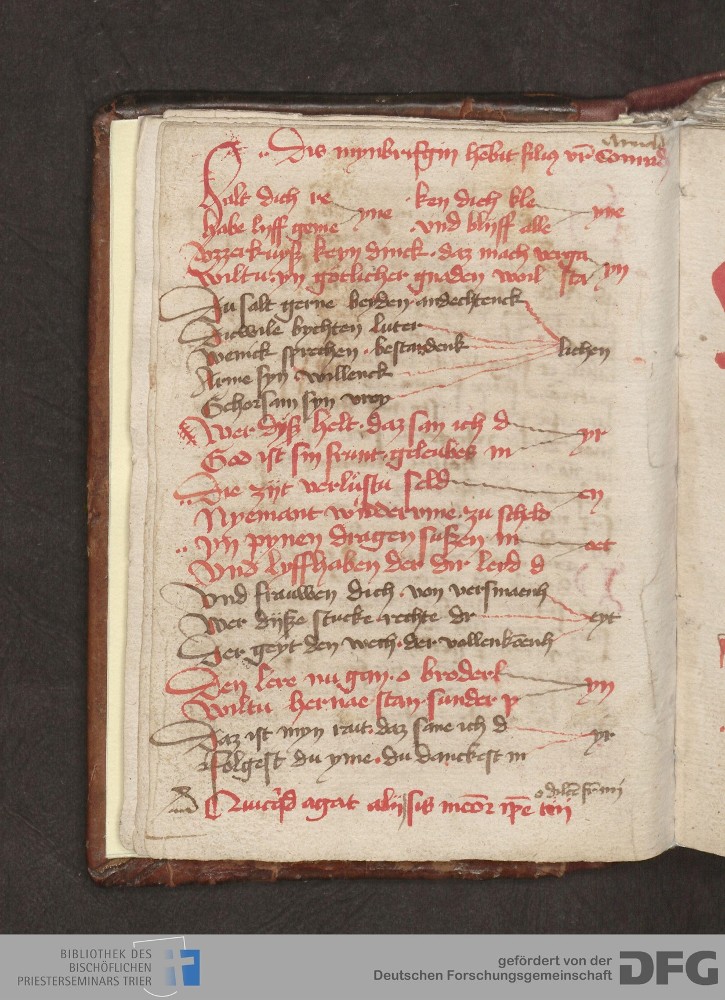 Dis mynbrifgin
halt dich re ken dich kle
yne yne
habe lyff geme vnd blyff alle
vzzerkuyß keyn dinck daz mach verga
yn
wiltu yn gotlicher gnaden woil sta
Du salt gerne beeden andechtenck
Dicwile bychten luter
wenick sprechen bestandenk lichen
Arme syn willenck
Gehorsam syn vroy
Wer dyß helt daz san ich d
yr
God ist sin frunt geleubes m
Die zijt verlustu seld
en
Nyemant wider yme zu scheld
yn pynen dragen sußen m
oet
Vnd lyffhaben der dir leid d
Vnd frauwen dich von versmaenh
Wer dyße stucke rechte dr eyt
Der geyt den wech der vollenkōenh
Den lere nu gan o broderl
yn
Wiltu hernae stan sunder p
Daz ist myn rait daz sane ich d
yr
Folgest du yme du danckest m
agat
BIBLIOTHEK DES
BISCHÖFLICHEN
PRIESTERSEMINARS TRIER
gefördert von der
Deutschen Forschungsgemeinschaft
DFG